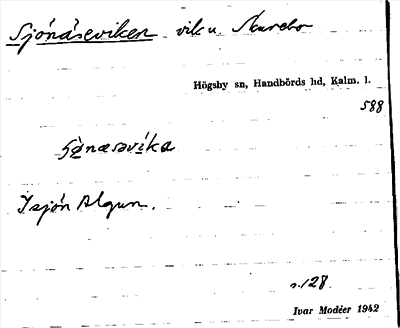 Sjönäseviken vik u. Aarebo
Högsby sn, Handbörds hd, Kalm. l.
588
I sjön Algun.
s. 128
Ivar Modéer 1942